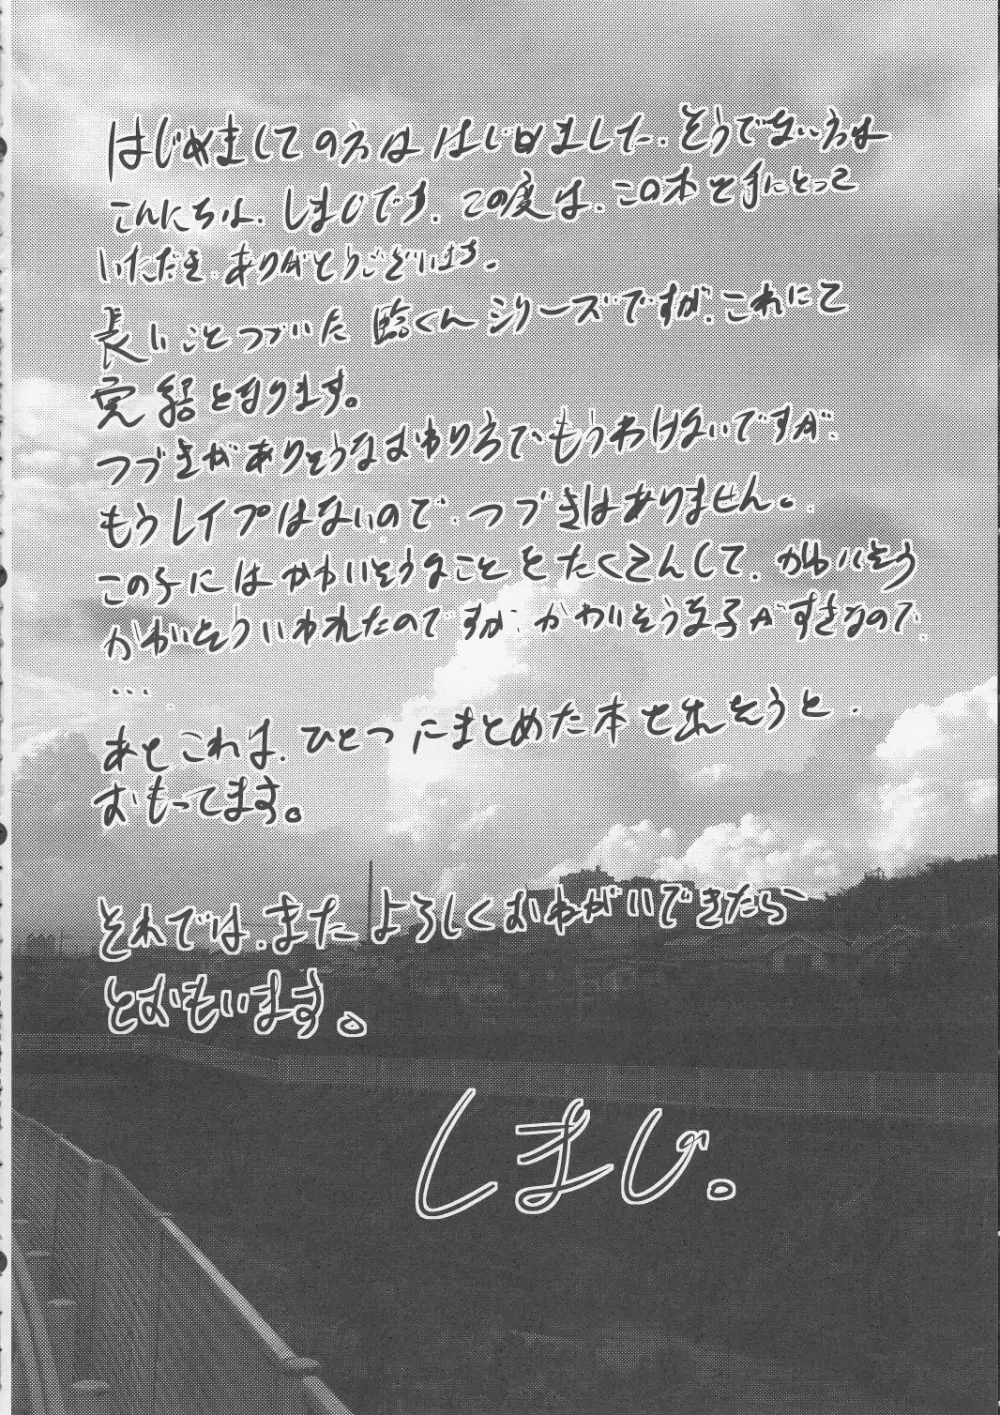 はじめましての方ははじめました。そうでない方は
こんにちは。しまじです。この度は、この本を手にとって
いただき、ありがとうございます。
長いことつづいた 臨くん シリーズですが、これにて
完結となります。
つづきがありそうなおわり方でもうわけないですが、
もうレイプはないので、つづきはありません。
この子にはかわいそうなことをたくさんして、かわいそう
かわいそういわれたのですが、かわいそうな子がすきなので
...
あとこれは、ひとつにまとめた本を出そうと
おもってます。
それでは、またよろしくおねがいできたら
とおもいます。
しまじ。